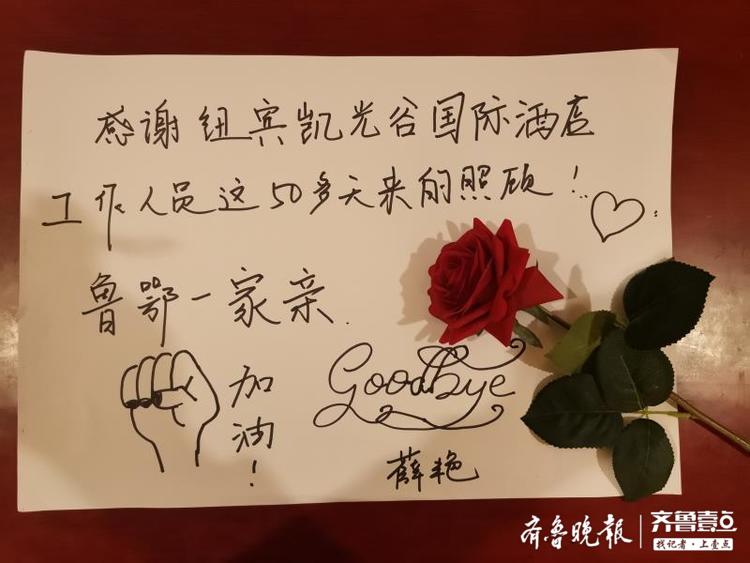 感谢纽宾凯光谷国际酒店
工作人员这50多天来的照顾！
鲁鄂一家亲.
加油！
Goodbye
薛艳
齐鲁晚报
齐鲁壹点
找记者·上壹点